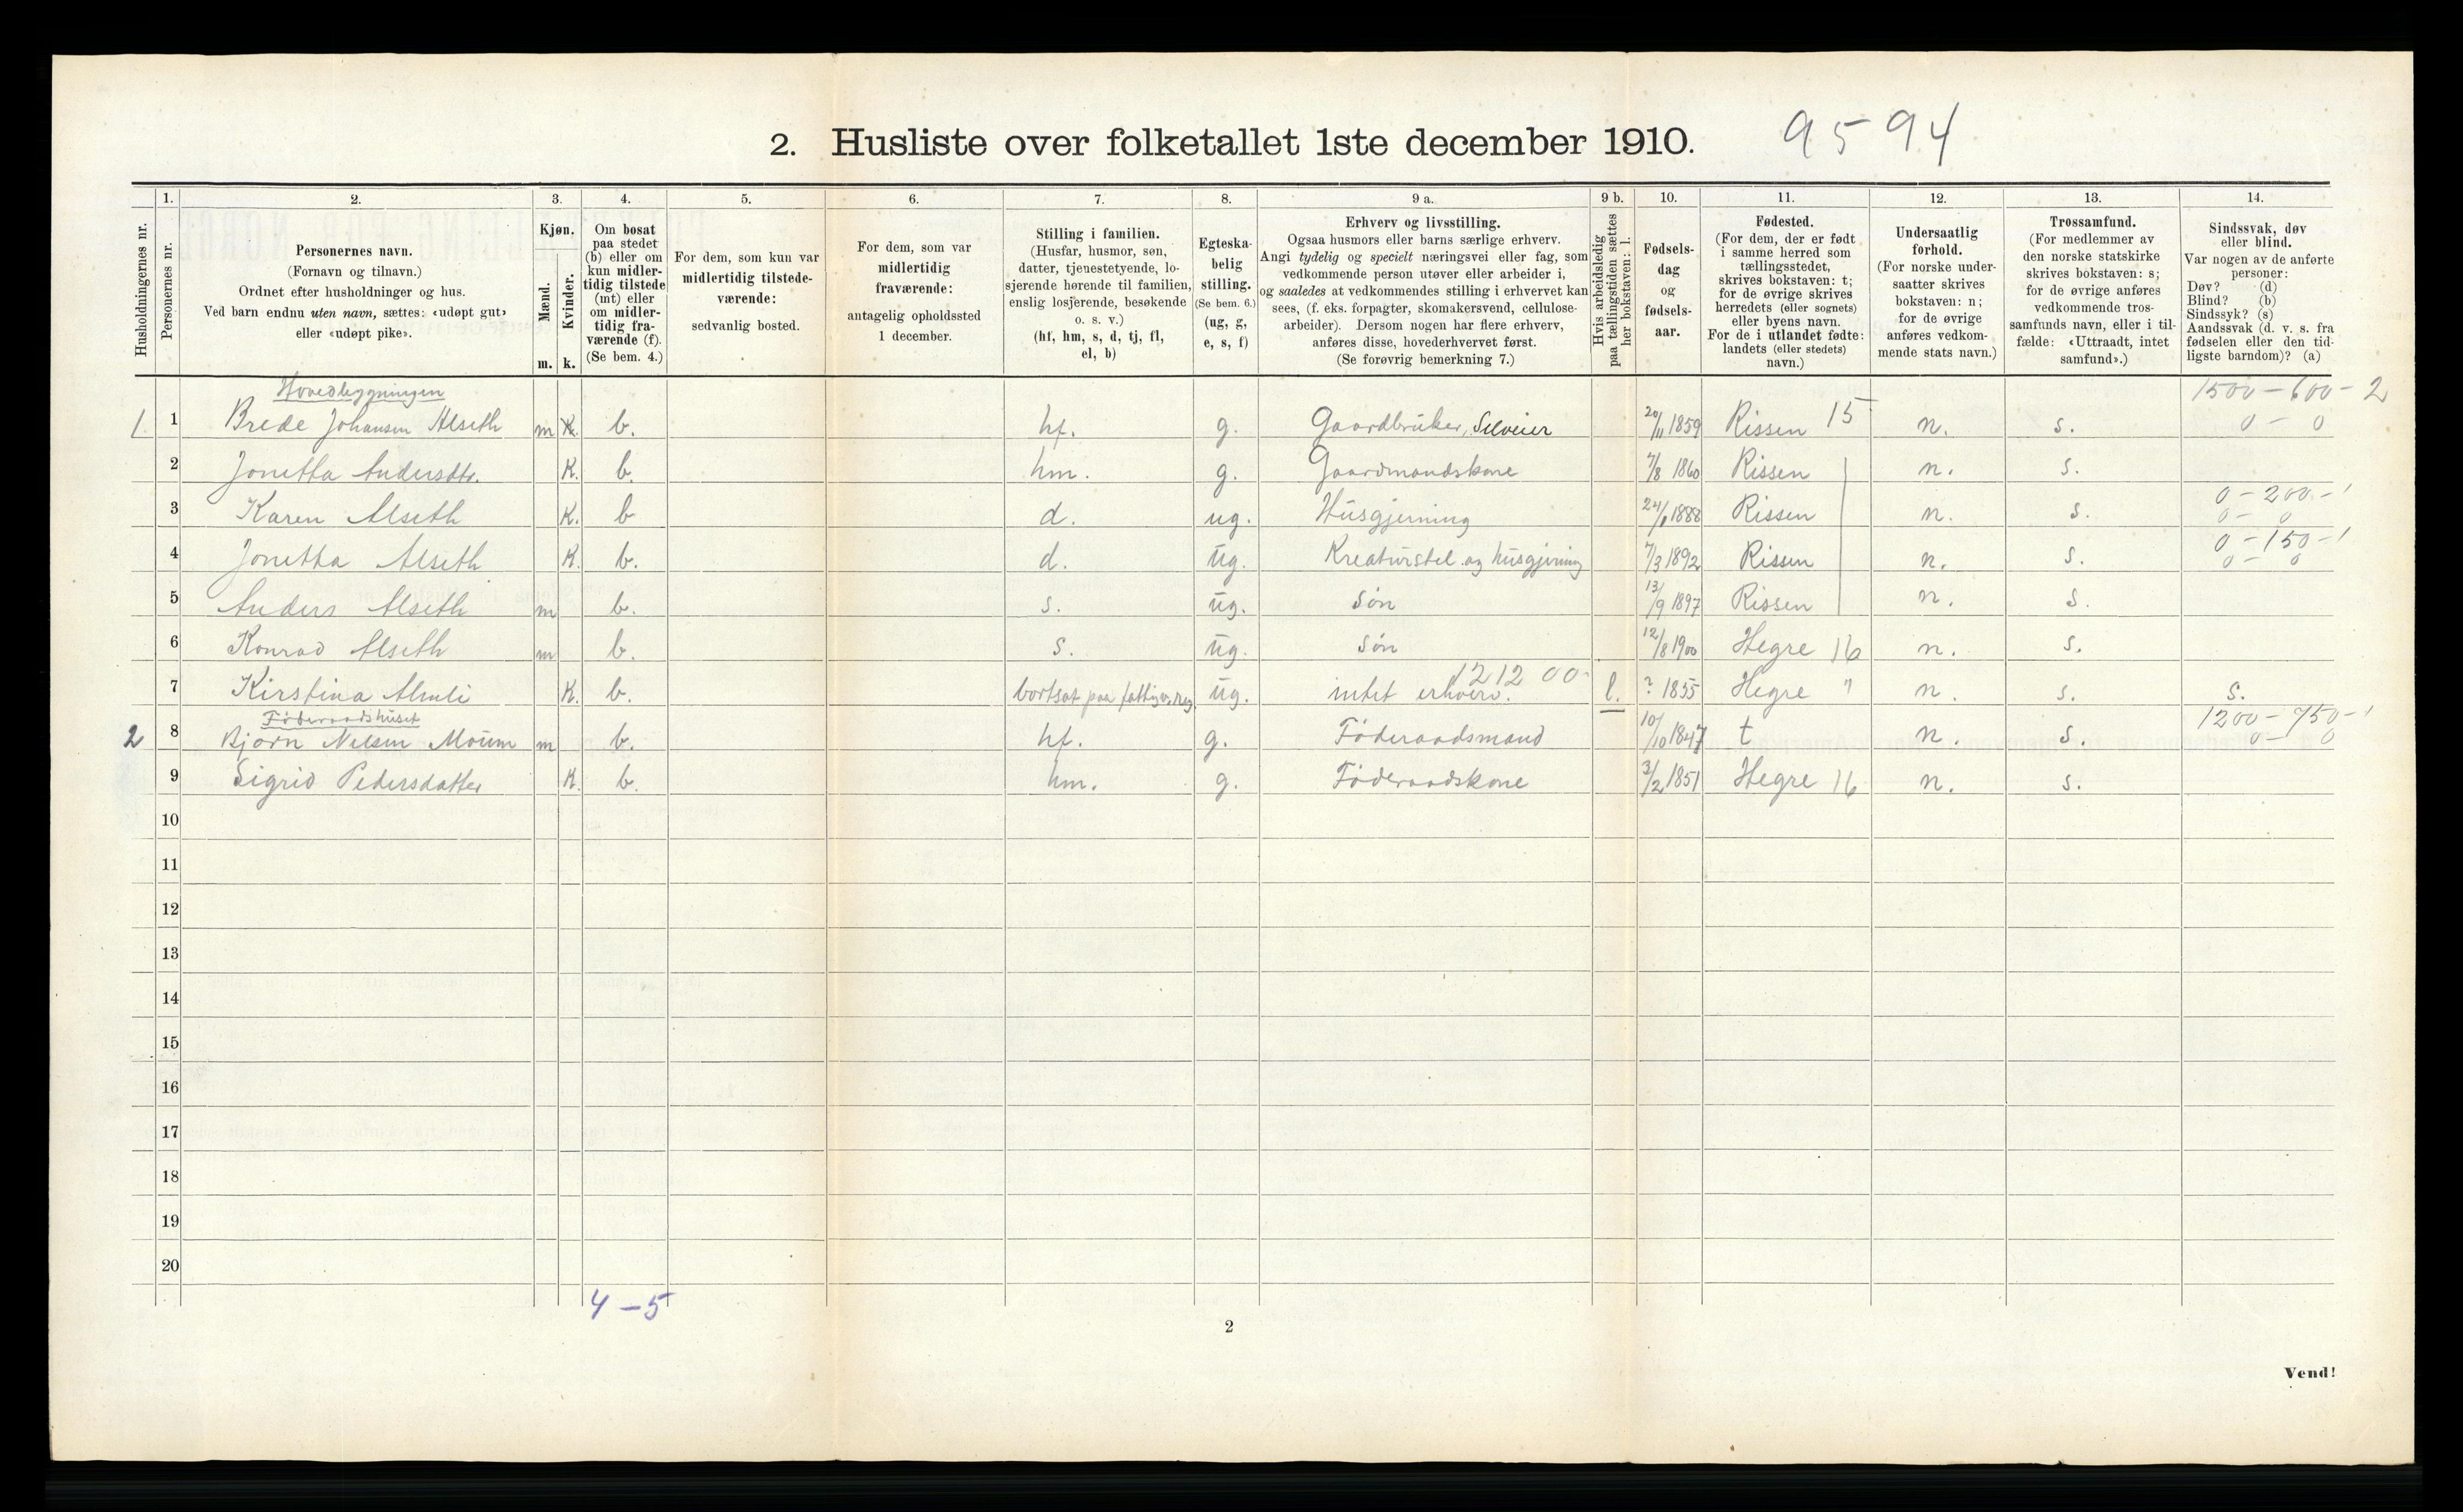 2. Husliste over folketallet 1ste december 1910. 9594
Husholdningernes nr.
1. Personernes nr.
2. Personernes navn.
(Fornavn og tilnavn.)
Ordnet efter husholdninger og hus.
Ved barn endnu uten navn, sættes: «udøpt gut»
eller «udøpt pike».
3. Kjøn.
Mænd. m.
Kvinder. k.
4. Om bosat
paa stedet
(b) eller om
kun midler-
tidig tilstede
(mt) eller
om midler-
tidig fra-
værende (f).
(Se bem. 4.)
5. For dem, som kun var
midlertidig tilstede-
værende:
sedvanlig bosted.
6. For dem, som var
midlertidig
fraværende:
antagelig opholdssted
1 december.
7. Stilling i familien.
(Husfar, husmor, søn,
datter, tjenestetyende, lo-
sjerende hørende til familien,
enslig losjerende, besøkende
o. s. v.)
(hf, hm, s, d, tj, fl,
el, b)
8. Egteska-
belig
stilling.
(Se bem. 6.)
(ug, g,
e, s, f)
9 a. Erhverv og livsstilling.
Ogsaa husmors eller barns særlige erhverv.
Angi tydelig og specielt næringsvei eller fag, som
vedkommende person utøver eller arbeider i,
og saaledes at vedkommendes stilling i erhvervet kan
sees, (f. eks. forpagter, skomakersvend, cellulose-
arbeider). Dersom nogen har flere erhverv,
anføres disse, hovederhvervet først.
(Se forøvrig bemerkning 7.)
9 b. Hvis arbeidsledig
paa tællingstiden sættes
her bokstaven: l.
10. Fødsels-
dag
og
fødsels-
aar.
11. Fødested.
(For dem, der er født
i samme herred som
tællingsstedet,
skrives bokstaven: t;
for de øvrige skrives
herredets (eller sognets)
eller byens navn.
For de i utlandet fødte:
landets (eller stedets)
navn.)
12. Undersaatlig
forhold.
(For norske under-
saatter skrives
bokstaven: n;
for de øvrige
anføres vedkom-
mende stats navn.)
13. Trossamfund.
(For medlemmer av
den norske statskirke
skrives bokstaven: s;
for de øvrige anføres
vedkommende tros-
samfunds navn, eller i til-
fælde: «Uttraadt, intet
samfund».)
14. Sindssvak, døv
eller blind.
Var nogen av de anførte
personer:
Døv? (d)
Blind? (b)
Sindssyk? (s)
Aandssvak (d. v. s. fra
fødselen eller den tid-
ligste barndom)? (a)
Hovedbygningen 1500 - 600 - 2
1 1 Brede Johansen Alseth m b. hf. g. Gaardbruker, Selveier 20/11 1859 Rissen 15 n. s. 0 - 0
2 Jonetta Andersdtr. K. b. hm. g. Gaardmandskone 7/8 1860 Rissen n. s.
0 - 200 - 1
3 Karen Alseth K. b d. ug. Husgjerning 1888 Rissen n. s. 0 - 0
0 - 150 - 1
4 Jonetta Alseth K. b. d. ug. Kreaturstel og husgjerning 7/3 1892 Rissen n. s. 0 - 0
5 Anders Alseth m b. s. ug. Søn 13/9 1897 Rissen n. s.
6 Konrad Alseth m b. s. ug. Søn 12/8 1900 Hegre 16 n. s.
1212 00
7 Kirstina K. b. bortsat paa ug. intet erhverv. l. ? 1855 Hegre " n. s. s.
Føderaadshuset 1200 - 750 - 1
2 8 Bjørn Nelsen Moum m b. hf. g. Føderaadsmand 10/10 1847 t n. s. 0 - 0
9 Sigrid Pedersdatter K. b. hm. g. Føderaadskone 3/2 1851 Hegre 16 n. s.
10
11
12
13
14
15
16
17
18
19
20
4 - 5
2
Vend!